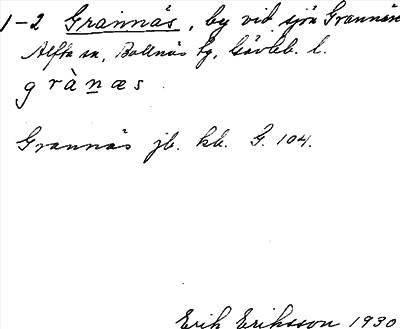 1-2 Grannäs, by vid sjön Grannäs
Alfta sn, Bollnäs tg, Gävleb. l.
grànæs
Grannäs jb. kb. G. 104.
Erik Eriksson 1930